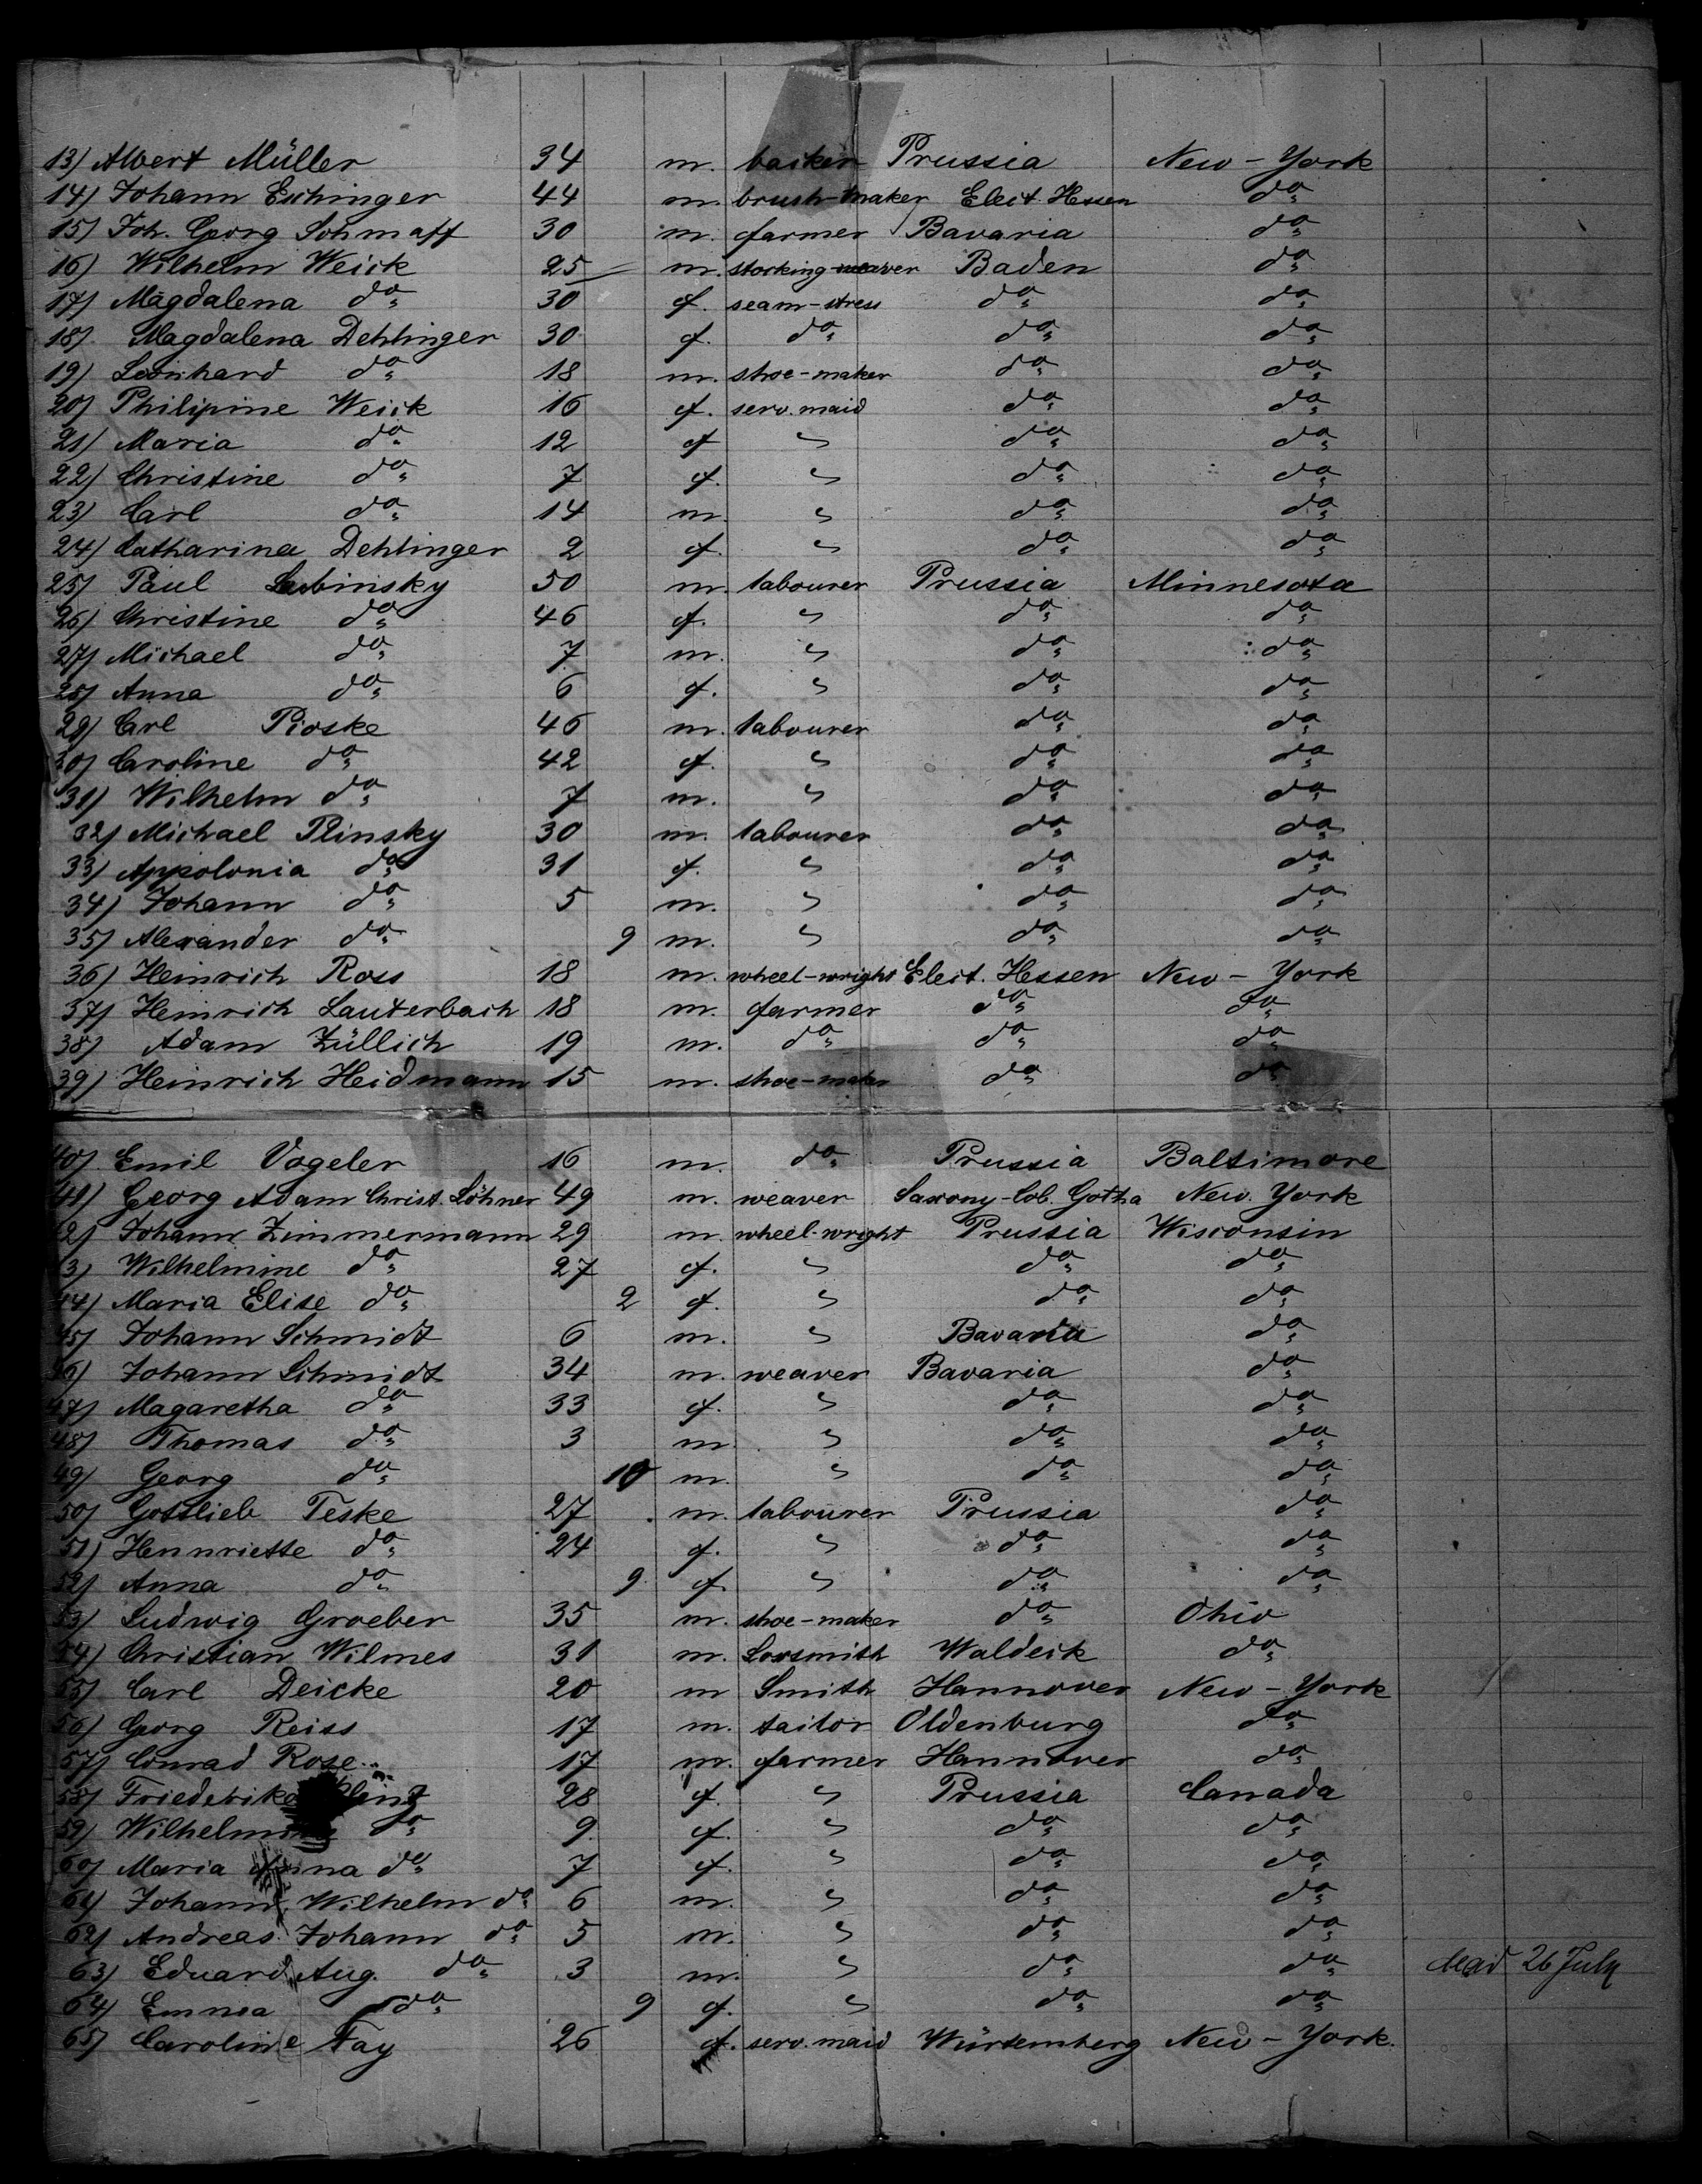 13) Albert Müller 34 m. backer Prussia New-York
14) Johann Eichinger 44 m. brush-maker Elect. Hessen do
15) Joh. Georg Schmaff 30 m. farmer Bavaria do
16) Wilhelm Weick 25 m. stocking-weaver Baden do
17) Magdalena do 30 f. seam-stress do do
18) Magdalena Dehlinger 30 f. do do do
19) Leonhard do 18 m. shoe-maker do do
20) Philipine Weick 16 f. serv. maid do do
21) Maria do 12 f " do do
22) Christine do 7 f. " do do
23) Carl do 14 m. " do do
24) Catharina Dehlinger 2 f. " do do
25) Paul Lubinsky 50 m. labourer Prussia Minnesota
26) Christine do 46 f. " do do
27) Michael do 7 m. " do do
28) Anna do 6 f. " do do
29) Carl Pioske 46 m. labourer do do
30) Caroline do 42 f. " do do
31) Wilhelm do 7 m. " do do
32) Michael Plinsky 30 m. labourer do do
33) Appolonia do 31 f. " do do
34) Johann do 5 m. " do do
35) Alexander do 9 m. " do do
36) Heinrich Ross 18 m. wheel-wright Elect. Hessen New-York
37) Heinrich Lauterbach 18 m. farmer do do
38) Adam Züllich 19 m. do do do
39) Heinrich Heidmann 15 m. shoe-maker do do
40) Emil Vogeler 16 m. do Prussia Baltimore
41) Georg Adam Christ. Löhner 49 m. weaver Saxony-Cob. Gotha New. York
2) Johann Zimmermann 29 m. wheel-wright Prussia Wisconsin
3) Wilhelmine do 27 f. " do do
44) Maria Elise do 2 f. " do do
45) Johann Schmidt 6 m. " Bavaria do
46) Johann Schmidt 34 m. weaver Bavaria do
47) Magaretha do 33 f. " do do
48) Thomas do 3 m. " do do
49) Georg do 10 m. " do do
50) Gottlieb Teske 27 m. labourer Prussia do
51) Hennriette do 24 f. " do do
52) Anna do 9 f. " do do
53) Ludwig Groeber 35 m. shoe-maker do Ohio
54) Christian Wilmes 31 m. Locsmith Waldeck do
55) Carl Deicke 20 m Smith Hannover New-York
56) Georg Reiss 17 m. tailor Oldenburg do
57) Conrad Rose 17 m. farmer Hannover do
58) Friederike 28 f. " Prussia Canada
59) Wilhelmine do 9 f. " do do
60) Maria Anna do 7 f. " do do
61) Johann Wilhelm do 6 m. " do do
62) Andreas Johann do 5 m. " do do
63) Eduard Aug. do 3 m. " do do dead 26 July
64) Emma do 9 f. " do do
65) Caroline Fay 26 f. serv. maid Würtemberg New-York.